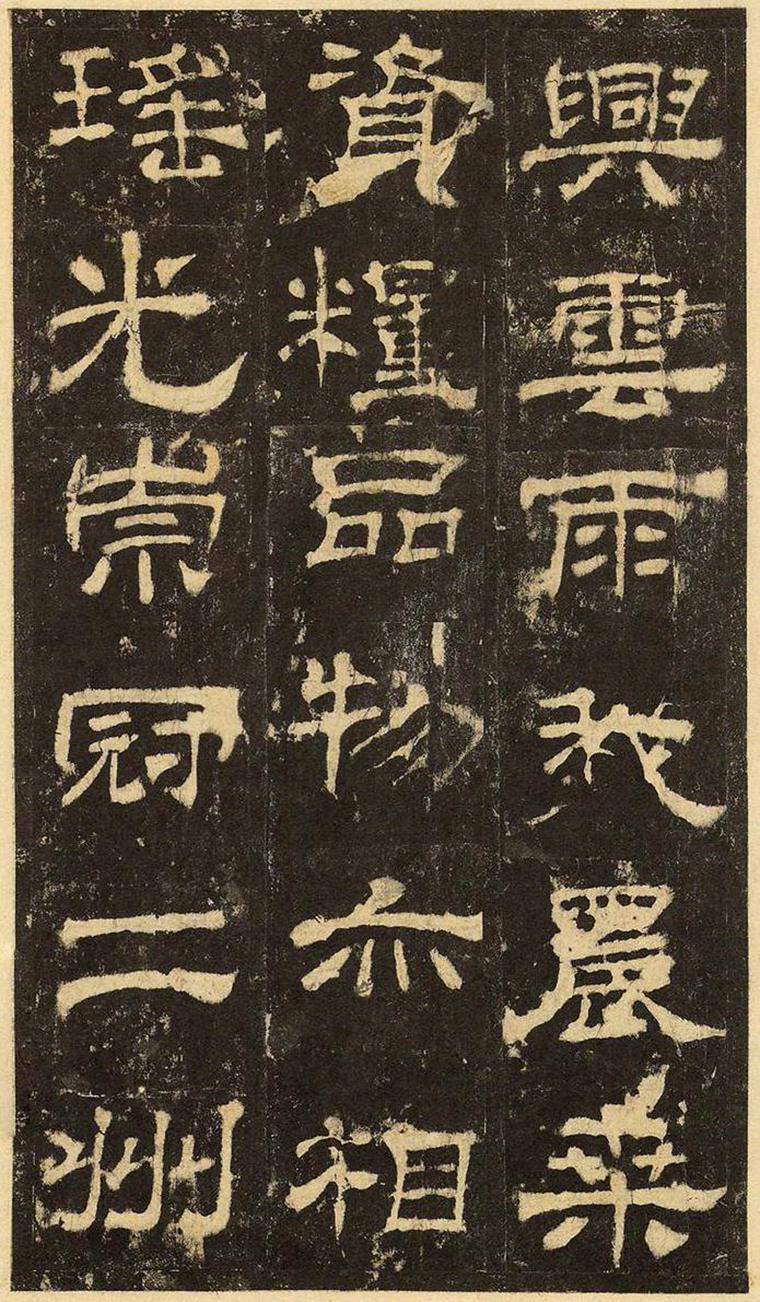 興雲雨我農桑
資糧品物亦相
瑤光崇冠二州